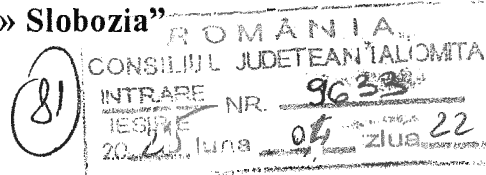 » Slobozia”
ROMÂNIA
CONSILIUL JUDEȚEAN IALOMIȚA
81
INTRARE NR. 9633
IEȘIRE
20 luna zIua 22